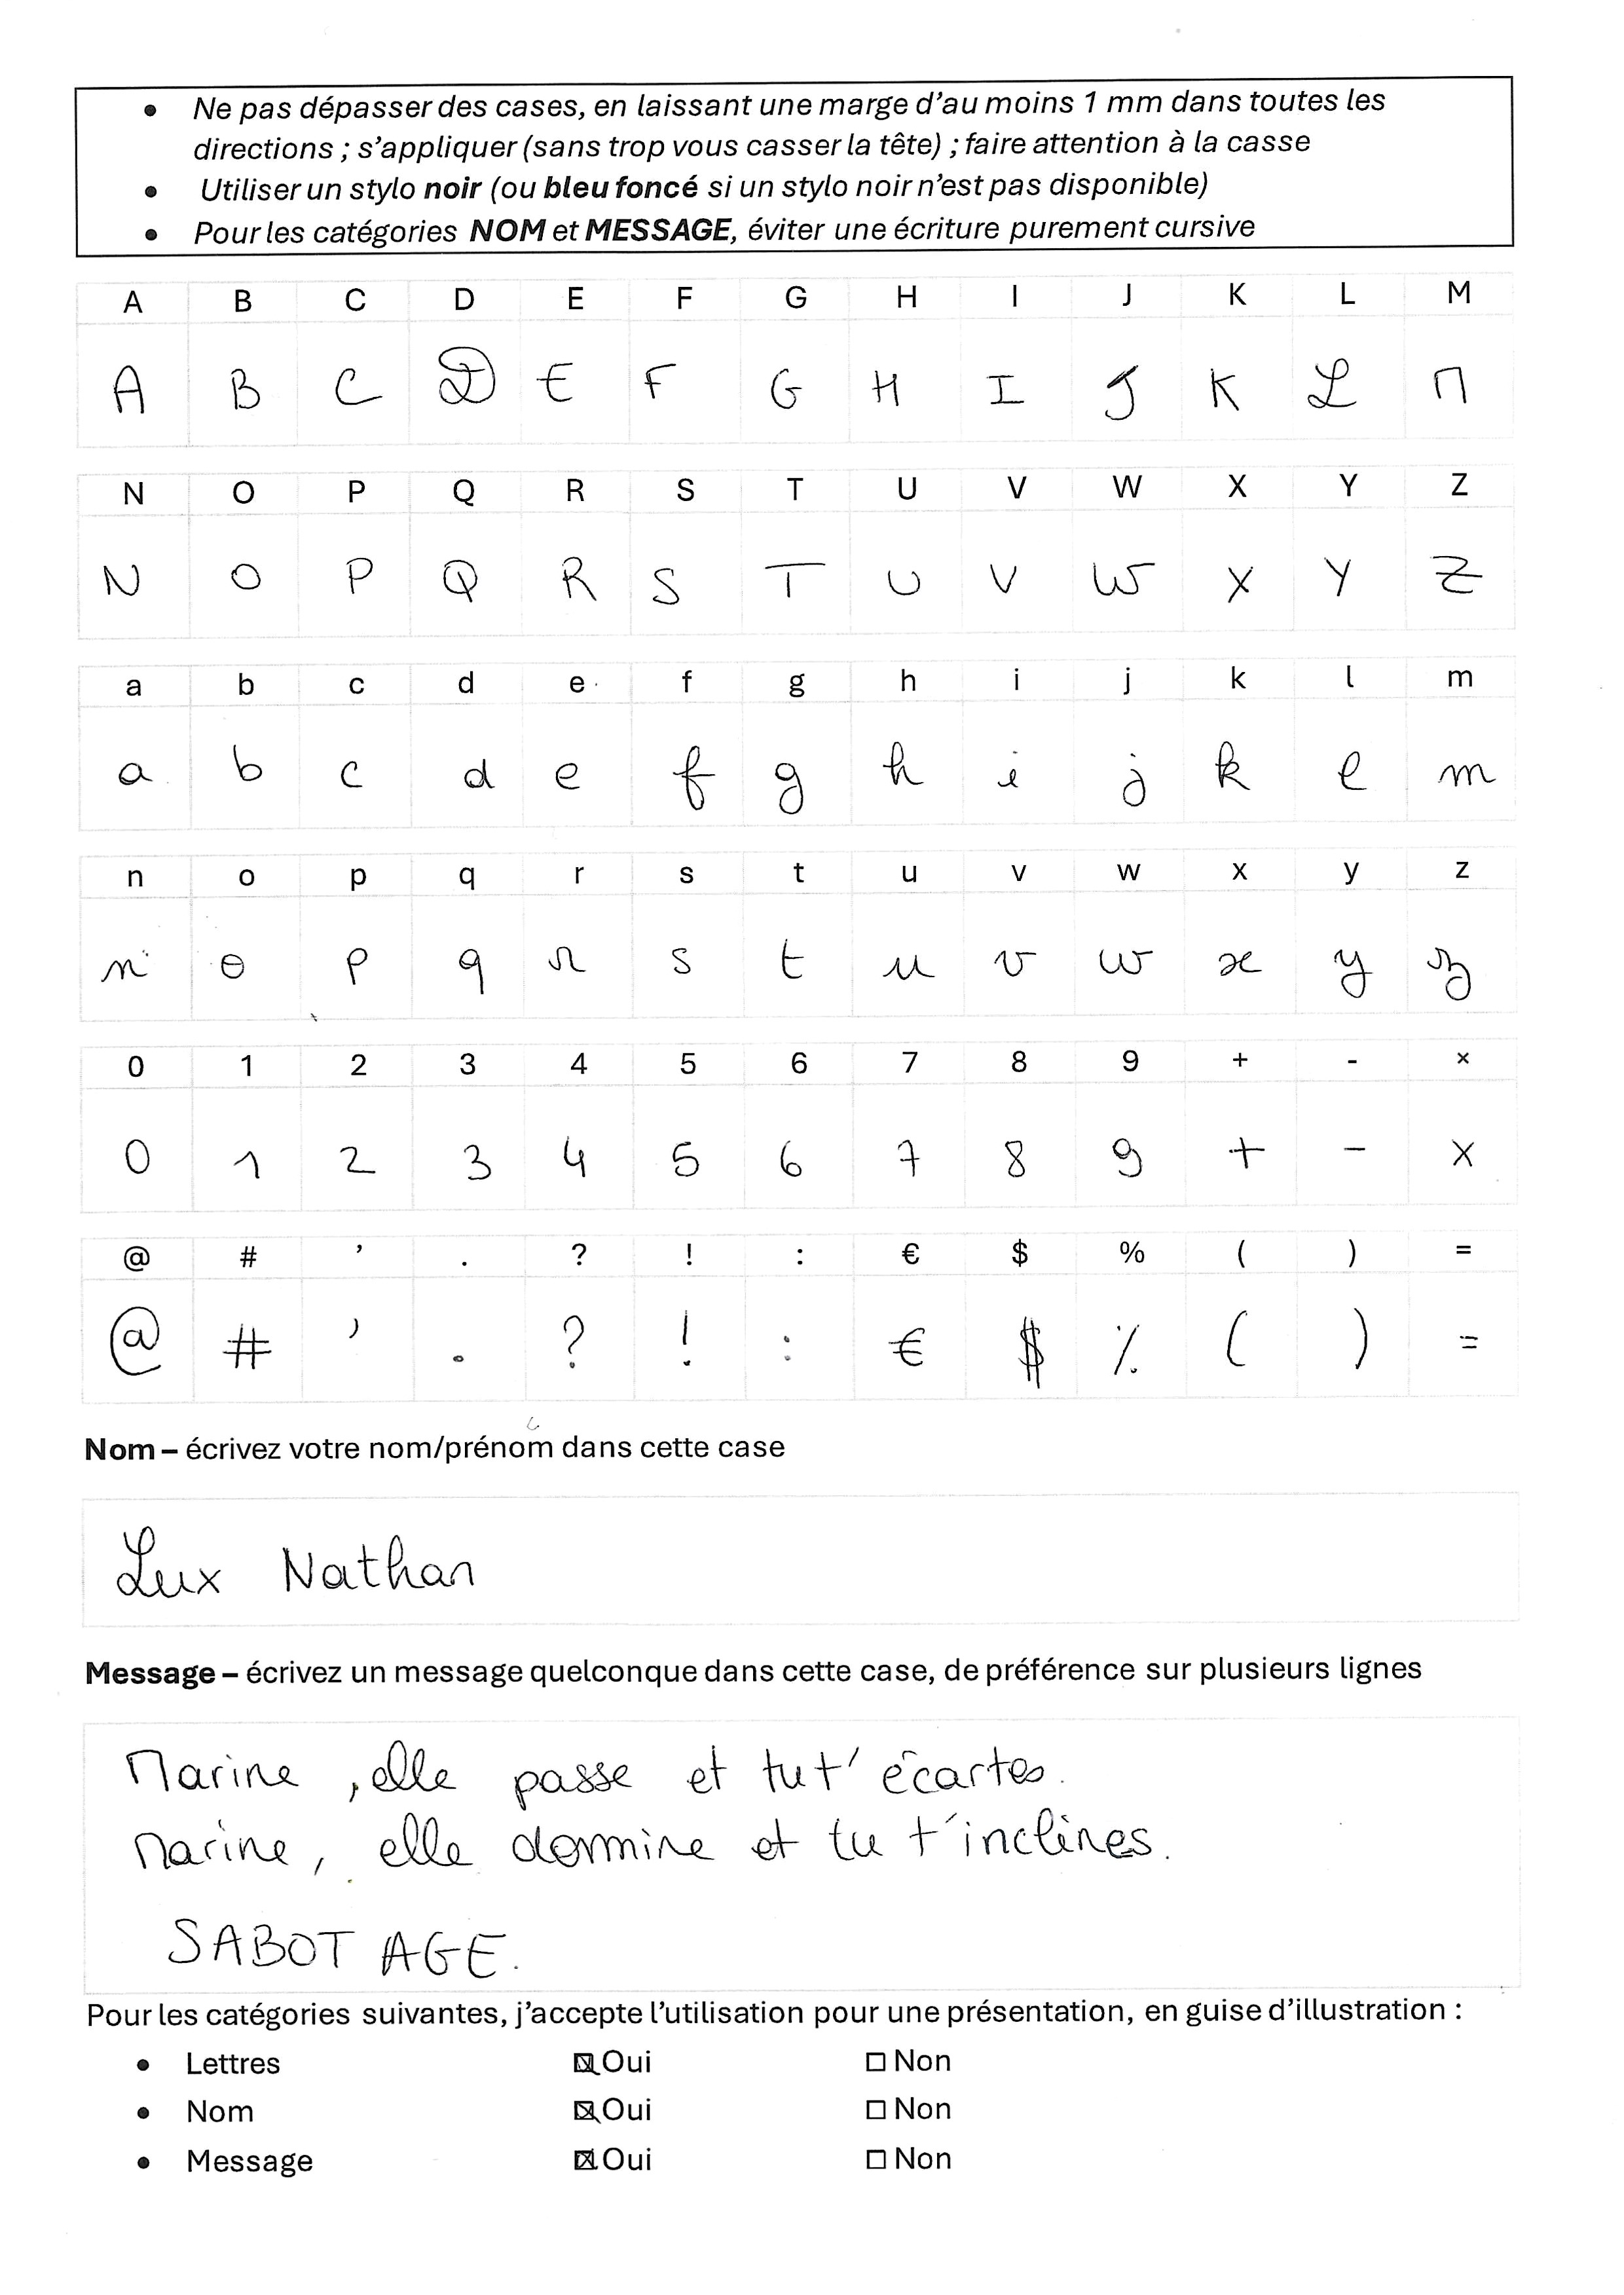 • Ne pas dépasser des cases, en laissant une marge d'au moins 1 mm dans toutes les
directions ; s'appliquer (sans trop vous casser la tête) ; faire attention à la casse
• Utiliser un stylo noir (ou bleu foncé si un stylo noir n'est pas disponible)
• Pour les catégories NOM et MESSAGE, éviter une écriture purement cursive
A B C D E F G H I J K L M
A B C D E F G H I J K L M
N O P Q R S T U V W X Y Z
N O P Q R S T U V W X Y Z
a b c d e f g h i j k l m
a b c d e f g h i j k l m
n o p q r s t u v w x y z
n o p q r s t u v w x y z
0 1 2 3 4 5 6 7 8 9 + - ×
0 1 2 3 4 5 6 7 8 9 + - ×
@ # ' . ? ! : € $ % ( ) =
@ # ' . ? ! : € $ % ( ) =
Nom – écrivez votre nom/prénom dans cette case
Lux Nathan
Message – écrivez un message quelconque dans cette case, de préférence sur plusieurs lignes
Marine, elle passe et tu t'écartes.
Marine, elle domine et tu t'inclines.
SABOTAGE.
Pour les catégories suivantes, j'accepte l'utilisation pour une présentation, en guise d'illustration :
• Lettres ☒ Oui ☐ Non
• Nom ☒ Oui ☐ Non
• Message ☒ Oui ☐ Non